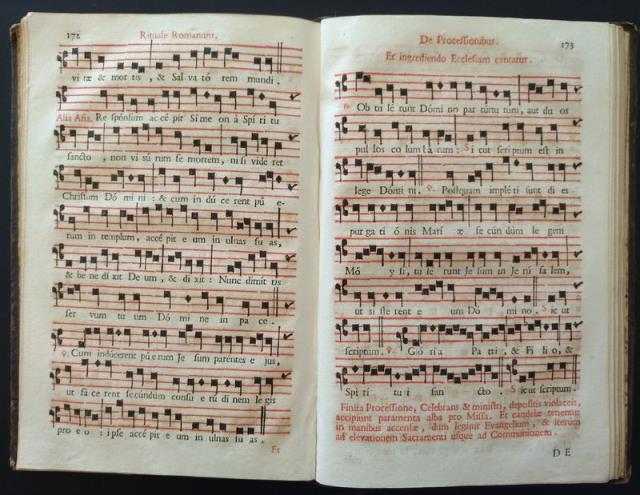 172
Rituale Romanum.
vi tæ & mor tis, & Sal va tó rem mundi.
Alia Aña. Re spónsum ac cé pit Si me on à Spí ri tu
sancto, non vi sú rum se mortem, ni si vidé ret
Christum Dó mi ni: & cum in dú ce rent pú e-
rum in templum, accé pit e um in ulnas su as,
& be ne di xit De um, & di xit: Nunc dimit tis
ser vum tu um Dó mi ne in pa ce.
℣. Cum indúcerent pú e rum Je sum paréntes e jus,
ut fá ce rent secúndùm consu e tú di nem le gis
pro e o: ipse accé pit e um in ulnas su as.
Et
De Processionibus.
173
Et ingrediendo Ecclesiam cantatur.
Ob tu lé runt Dómi no par túrtu rum, aut du os
pul los co lum bá rum: Si cut scriptum est in
lege Dómi ni. ℣. Postquam implé ti sunt di es
pur ga ti ó nis Marí æ se cún dùm le gem
Mó y si, tu lé runt Je sum in Je rú sa lem,
ut si ste rent e um Dó mi no. Sic ut
scriptum. ℣. Gló ri a Pa tri, & Fí li o, &
Spi rí tu i san cto. Si cut scriptum.
Finita Processione, Celebrans & ministri, depositis violaceis,
accipiunt paramenta alba pro Missa. Et candelæ tenentur
in manibus accensæ, dum legitur Evangelium, & iterum
ad elevationem Sacramenti usque ad Communionem.
DE